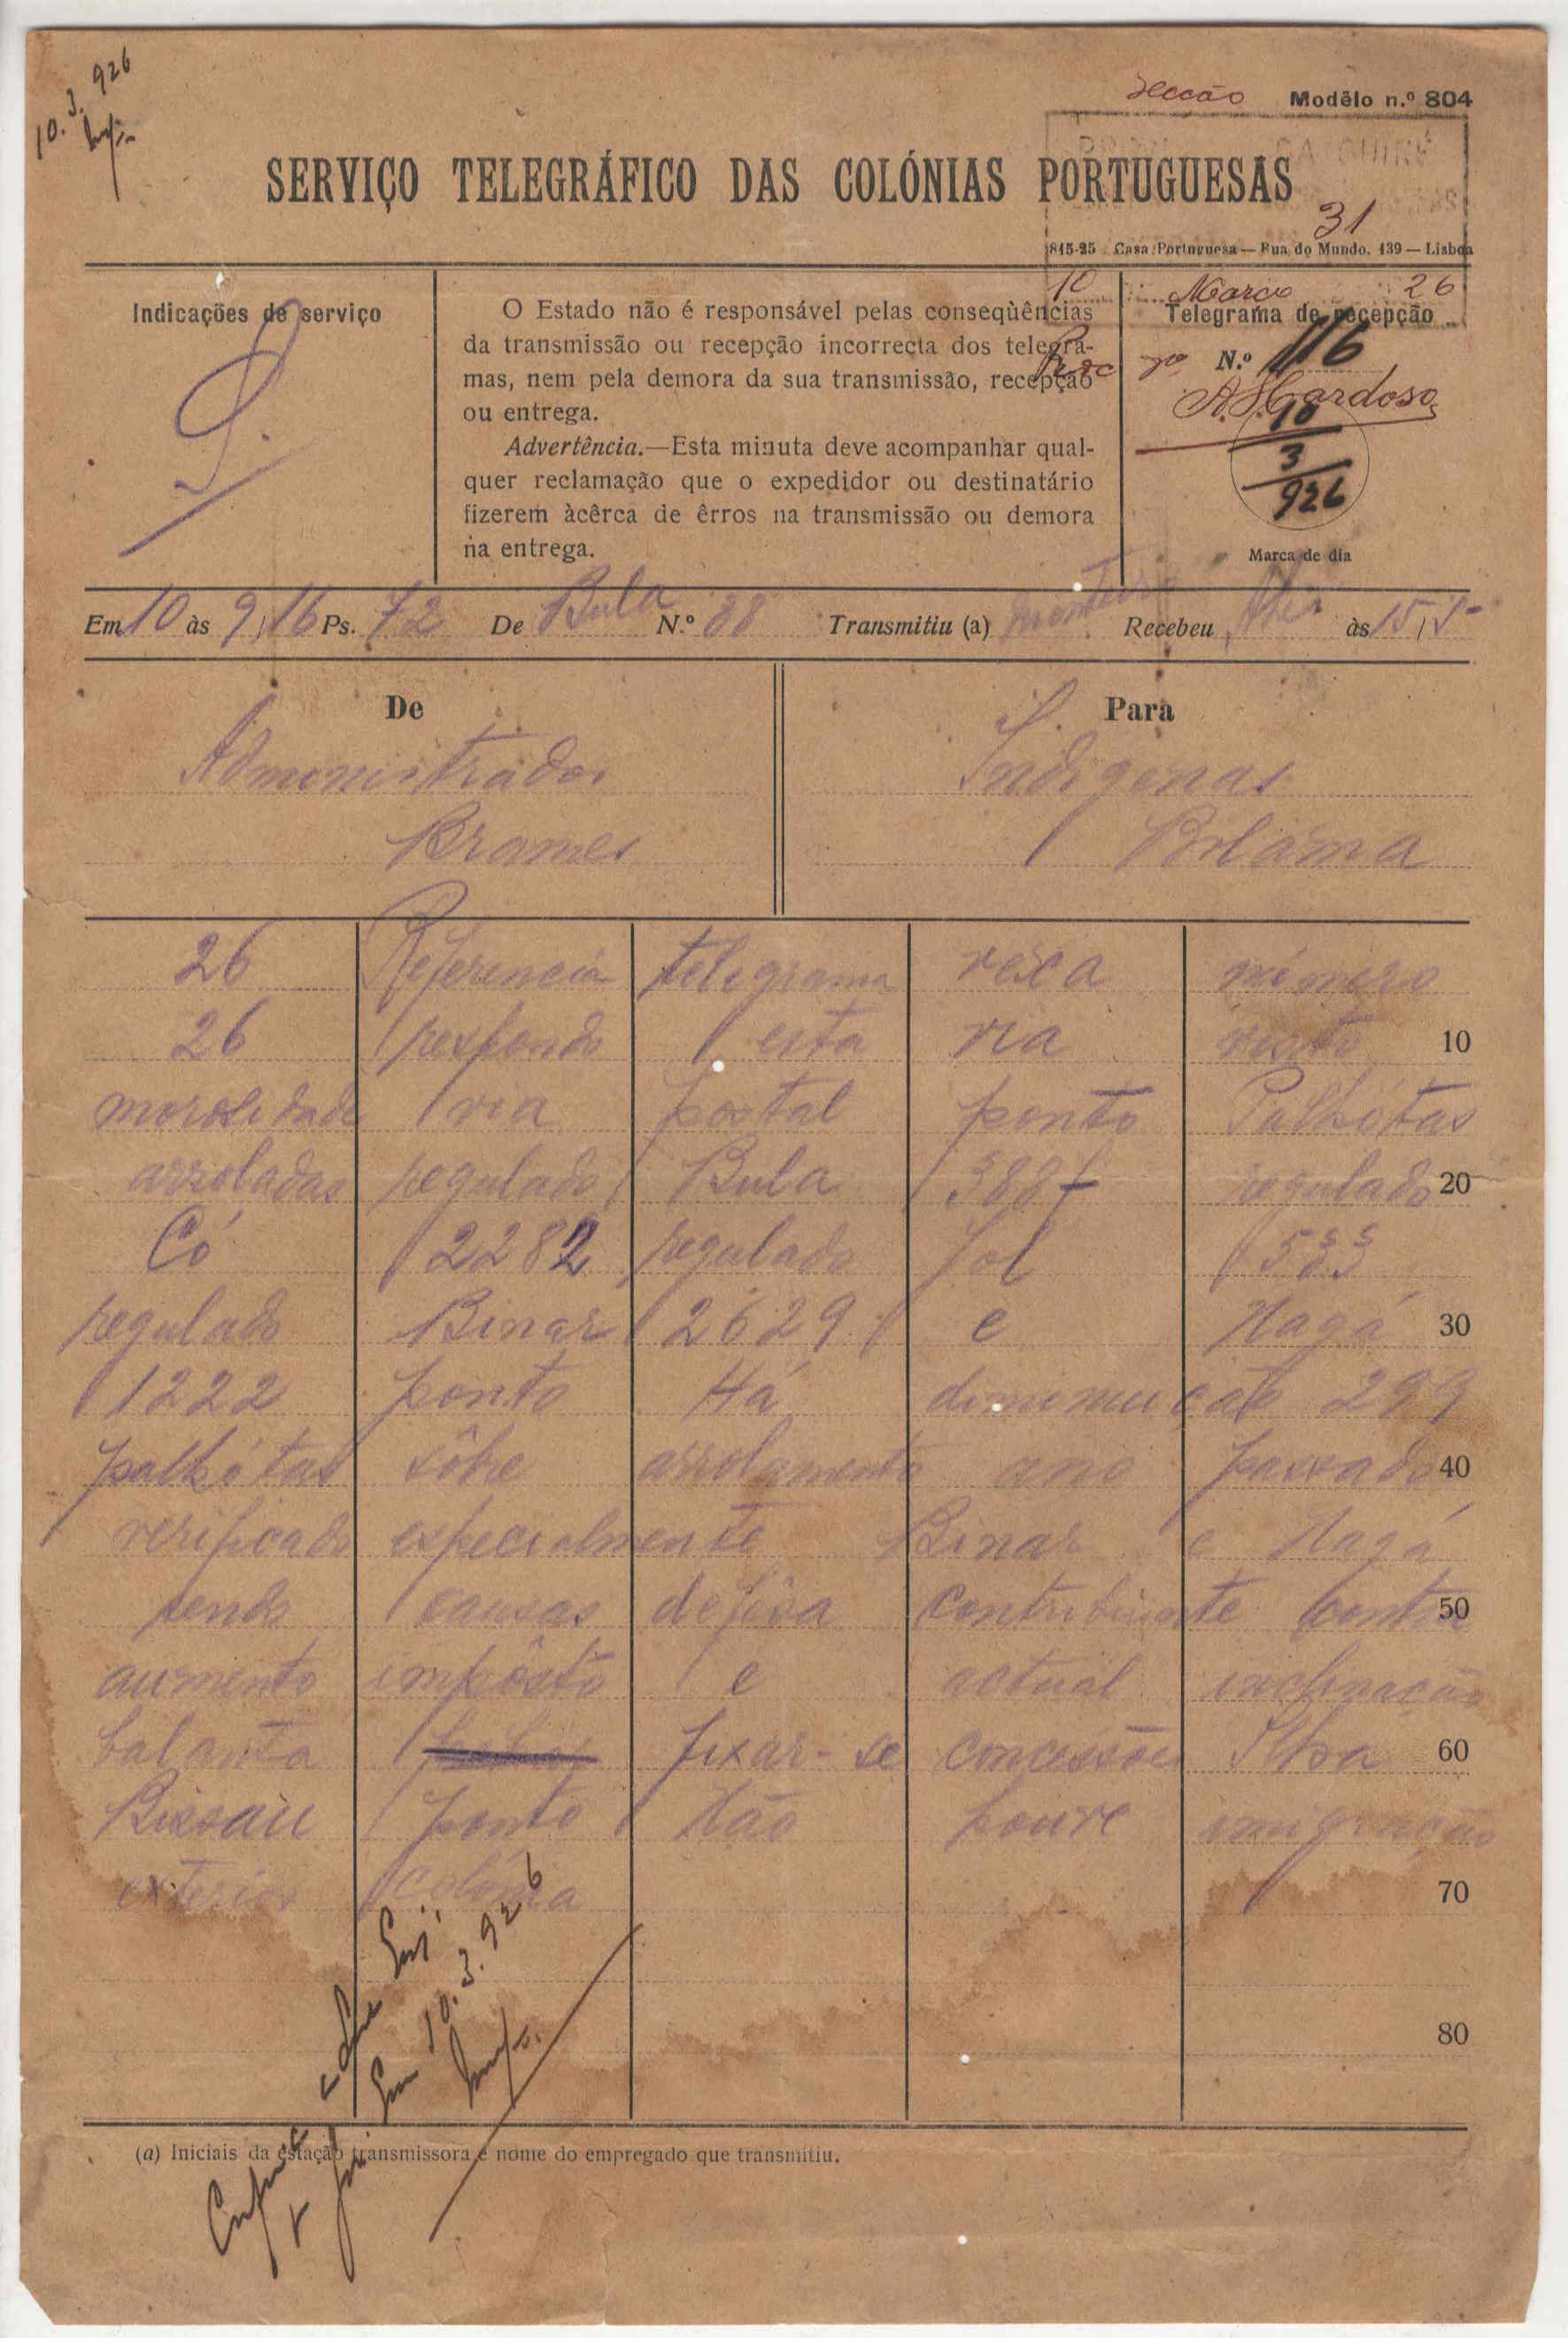 10.3.926
Secção Modêlo n.º 804
SERVIÇO TELEGRÁFICO DAS COLÓNIAS PORTUGUESAS
31
845-25 Casa Portuguesa — Rua do Mundo, 139 — Lisboa
10 Março 26
Indicações de serviço
O Estado não é responsável pelas conseqùências
da transmissão ou recepção incorrecta dos telegra-
mas, nem pela demora da sua transmissão, recepção
ou entrega.
Advertência.—Esta minuta deve acompanhar qual-
quer reclamação que o expedidor ou destinatário
fizerem àcêrca de êrros na transmissão ou demora
na entrega.
Telegrama de recepção
N.º 116
A. S. Cardoso
10
3
926
Marca de dia
Em 10 às 9,16 Ps. 72 De Bula N.º 38 Transmitiu (a) Monteiro Recebeu às 15,
De
Administrador
Brames
Para
Indigenas
Bolama
26 Referencia telegrama vexa número
26 respondo esta via visto 10
morosidade via postal ponto Palhótas
arroladas regulado Bula 388 regulado 20
Có 2282 regulado Jol 533
regulado Binar 2629 e Nagá 30
1222 ponto Há diminuição 299
palhótas sôbre arrolamento ano passado 40
verificado especialmente Binar e Nagá
sendo causas defêsa contribuinte contra 50
aumento impôsto e actual inclinação
balanta fixar-se concessões Ilha 60
Bissau ponto Não houve emigração
exterior colónia 70
80
Em 10.3.926
(a) Iniciais da estação transmissora e nome do empregado que transmitiu.